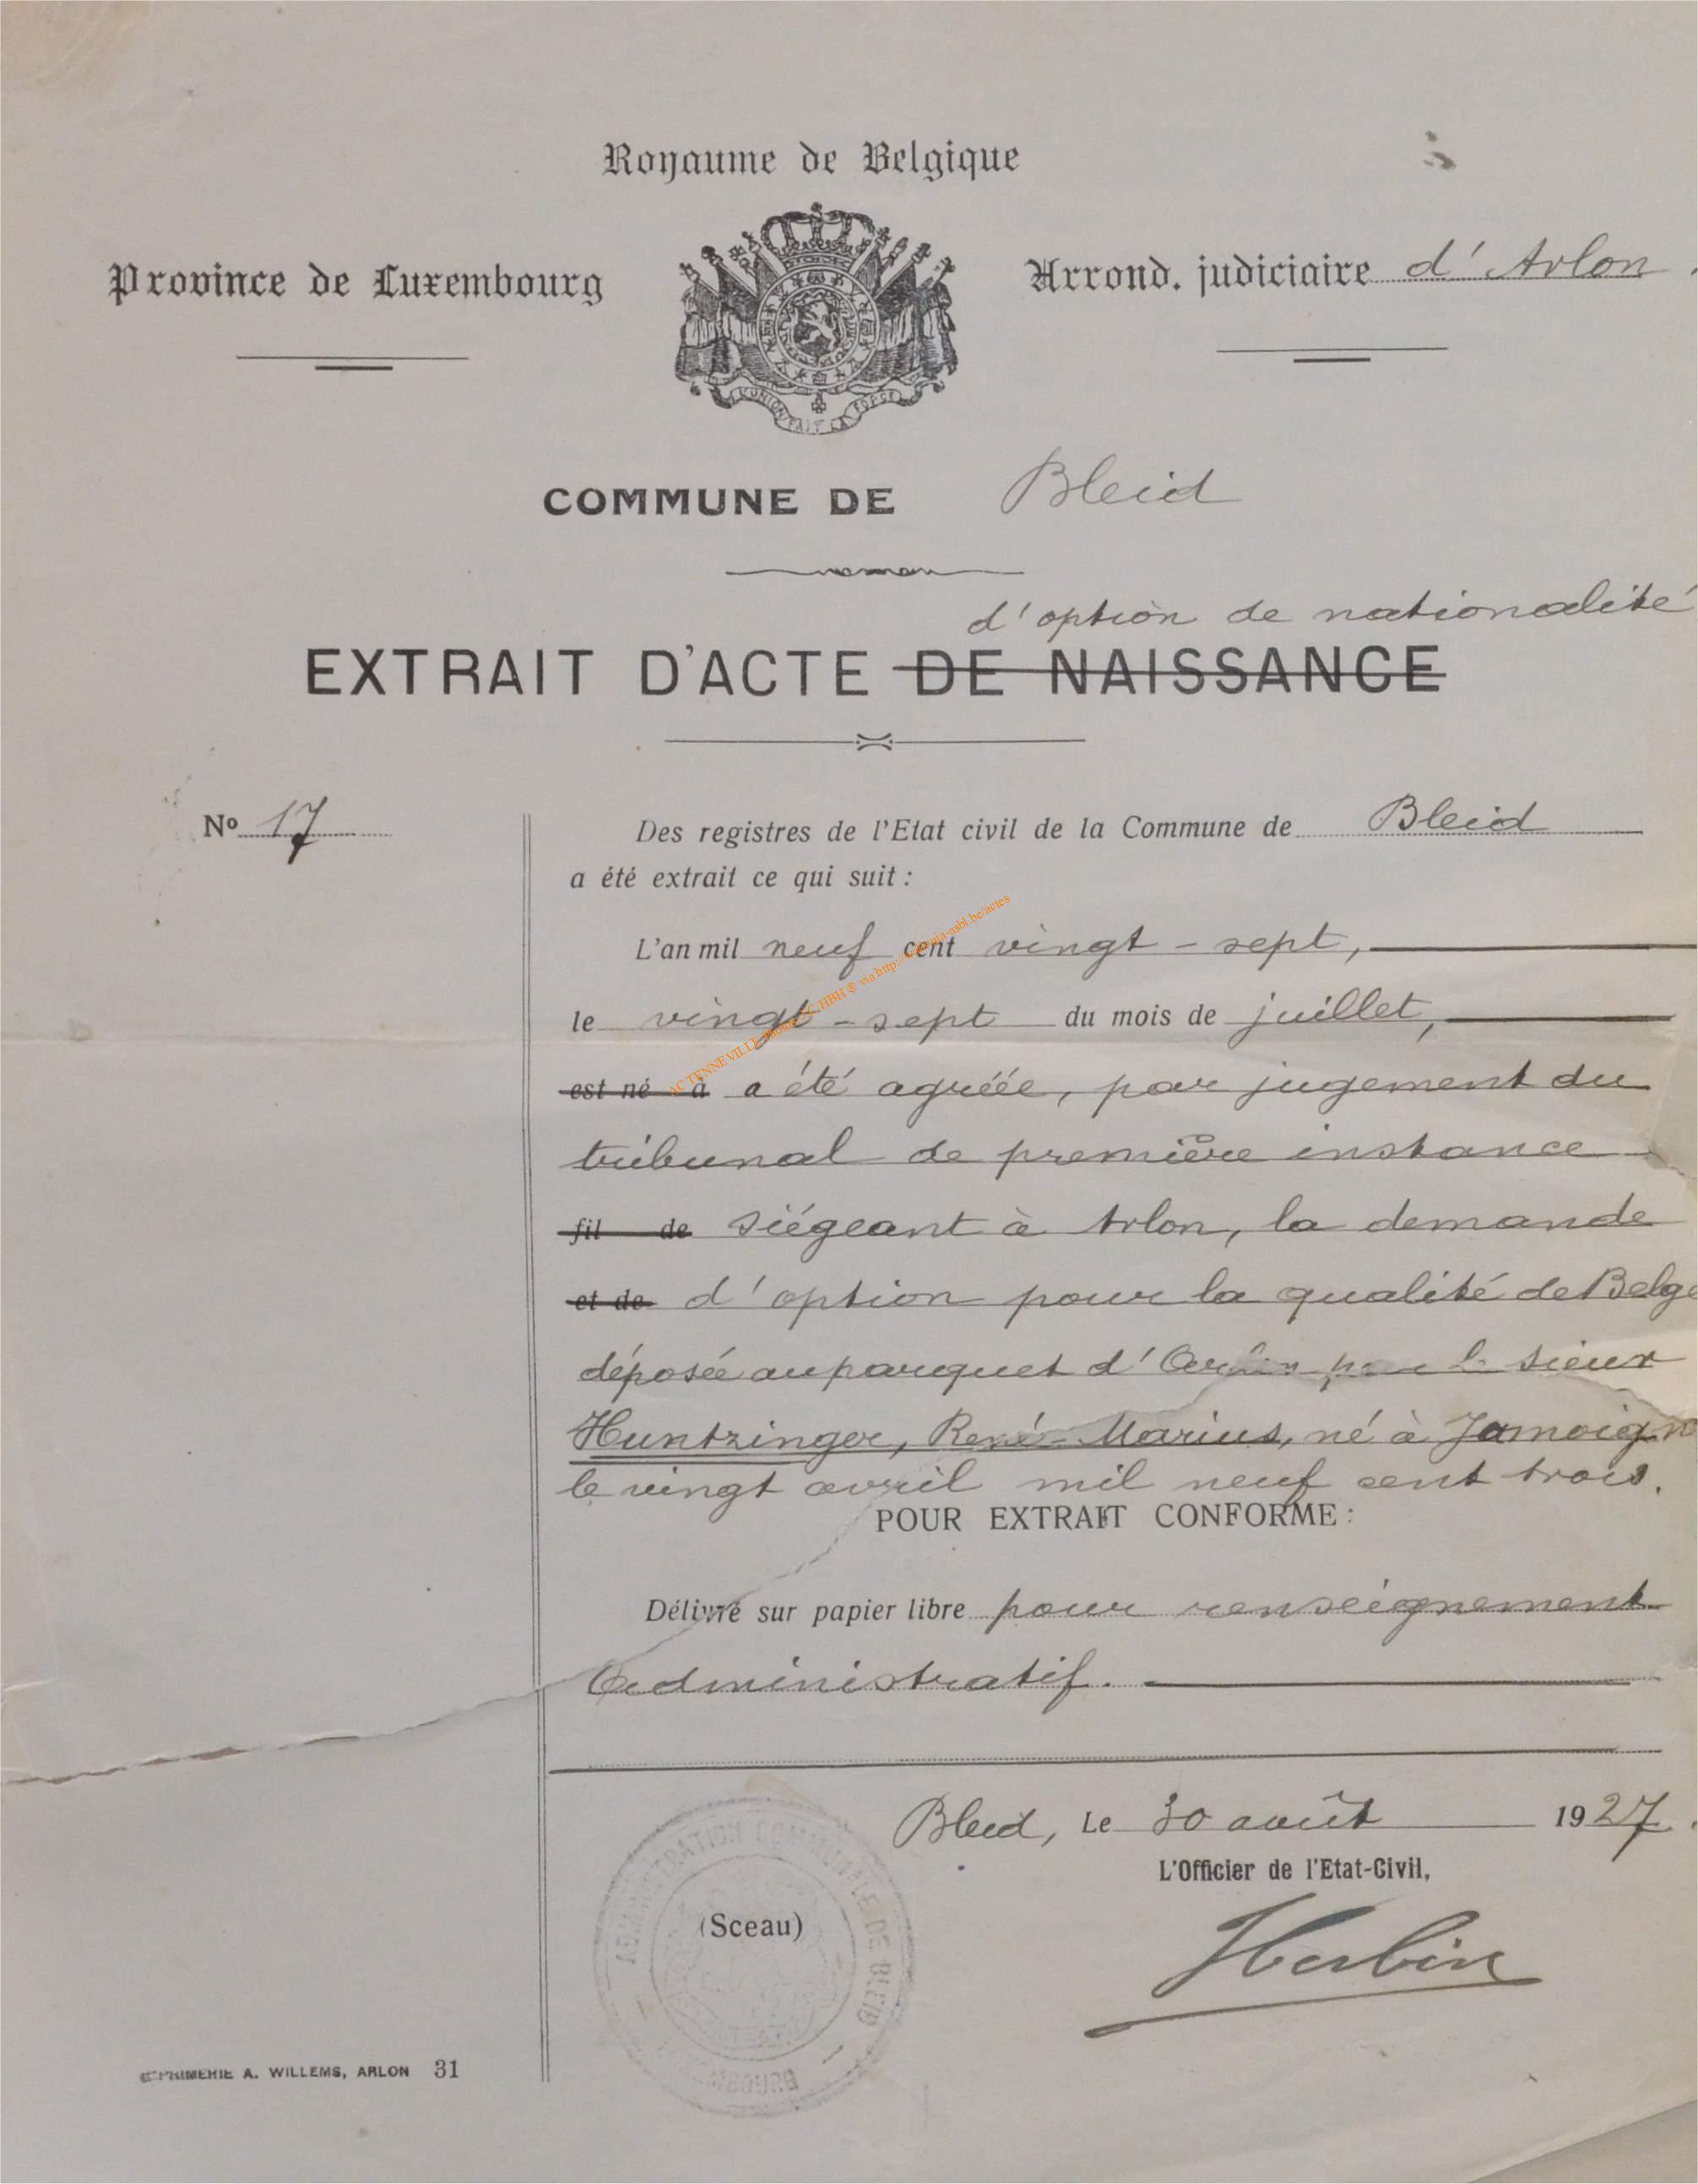 Royaume de Belgique
Province de Luxembourg
Arrond. judiciaire d' Arlon.
L'UNION FAIT LA FORCE
COMMUNE DE Bleid
d'option de nationalité
EXTRAIT D'ACTE DE NAISSANCE
No 17
Des registres de l'Etat civil de la Commune de Bleid
a été extrait ce qui suit :
L'an mil neuf cent vingt - sept,
le vingt - sept du mois de juillet,
est né à a été agréée, par jugement du
tribunal de première instance
fil de siégeant à Arlon, la demande
et de d'option pour la qualité de Belge
déposée au parquet d'Arlon par le sieur
Huntzinger, René-Marius, né à Jamoign
le vingt avril mil neuf cent trois.
POUR EXTRAIT CONFORME :
Délivré sur papier libre pour renseignement
administratif.
Bleid, Le 30 août 1927.
L'Officier de l'Etat-Civil,
(Sceau)
ADMINISTRATION COMMUNALE DE BLEID
Herbin
IMPRIMERIE A. WILLEMS, ARLON 31